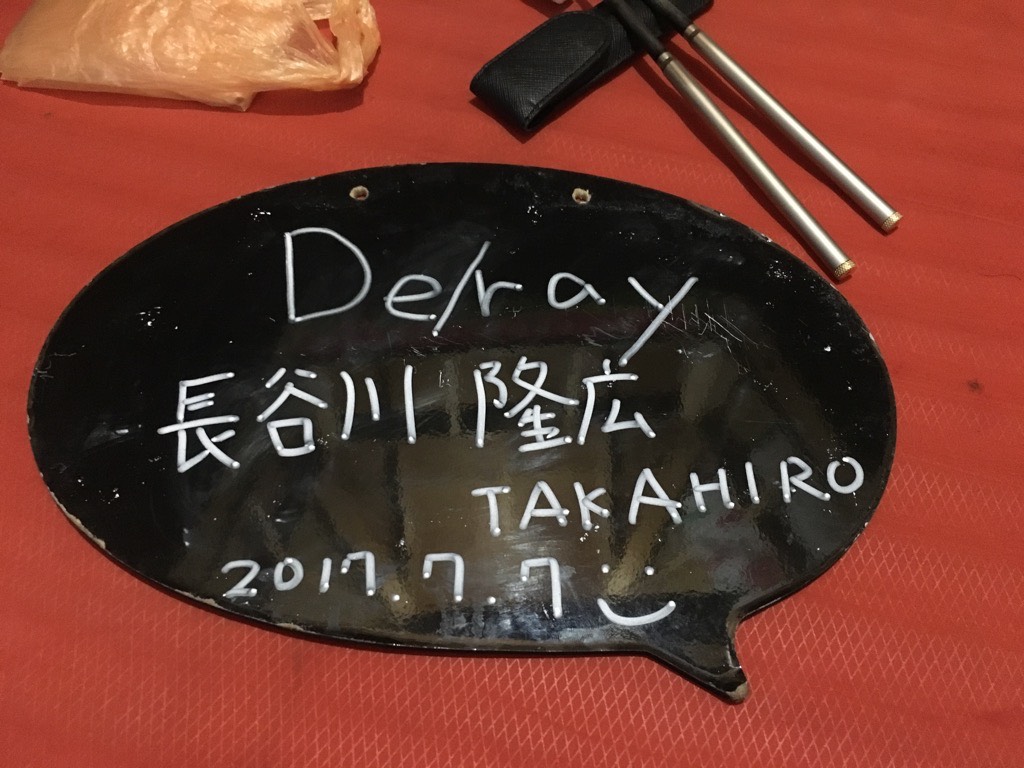 Delray
長谷川 隆広
TAKAHIRO
2017.7.7